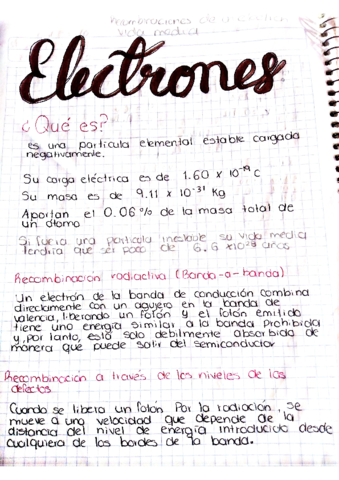 vida media
Electrones
¿Qué es?
es una partícula elemental estable cargada
negativamente.
Su carga eléctrica es de 1.60 x 10⁻¹⁹ C
Su masa es de 9.11 x 10⁻³¹ Kg
Aportan el 0.06% de la masa total de
un átomo
Si fuera una partícula inestable su vida media
tendría que ser poco de 6.6 x10²⁸ años
Recombinación radiactiva (Banda-a-banda)
Un electrón de la banda de conducción combina
directamente con un agujero en la banda de
valencia, liberando un fotón y el fotón emitido
tiene una energía similar a la banda prohibida
y, por lo tanto, está solo debilmente absorbida de
manera que puede salir del semiconductor
Recombinación a través de los niveles de los
defectos
Cuando se libera un fotón Por la radiación, se
mueve a una velocidad que depende de la
distancia del nivel de energía introducido desde
cualquiera de los bordes de la banda.